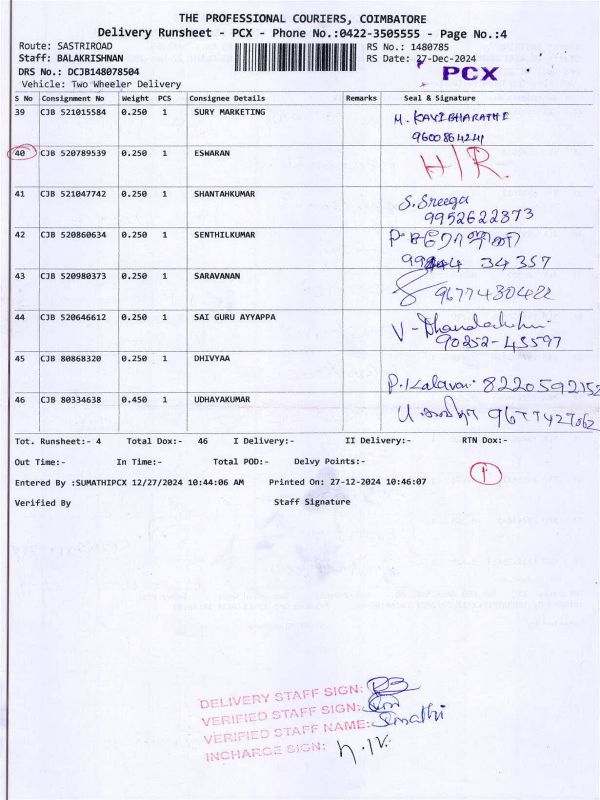 THE PROFESSIONAL COURIERS, COIMBATORE
Delivery Runsheet - PCX - Phone No.:0422-3505555 - Page No.:4
Route: SASTRIROAD RS No.: 1480785
Staff: BALAKRISHNAN RS Date: 27-Dec-2024
DRS No.: DCJB148078504 PCX
Vehicle: Two Wheeler Delivery
S No Consignment No Weight PCS Consignee Details Remarks Seal & Signature
39 CJB 521015584 0.250 1 SURY MARKETING M. KAVIBHARATHI
9600864241
40 CJB 520789539 0.250 1 ESWARAN H/R.
41 CJB 521047742 0.250 1 SHANTAHKUMAR S. Sreega
9952622873
42 CJB 520860634 0.250 1 SENTHILKUMAR
34 357
43 CJB 520980373 0.250 1 SARAVANAN 9677430422
44 CJB 520646612 0.250 1 SAI GURU AYYAPPA V - Dhanalakshmi
90252-43597
45 CJB 80868320 0.250 1 DHIVYAA P. Kalavani 8220592152
46 CJB 80334638 0.450 1 UDHAYAKUMAR 9677427062
Tot. Runsheet:- 4 Total Dox:- 46 I Delivery:- II Delivery:- RTN Dox:-
Out Time:- In Time:- Total POD:- Delvy Points:- 1
Entered By :SUMATHIPCX 12/27/2024 10:44:06 AM Printed On: 27-12-2024 10:46:07
Verified By Staff Signature
DELIVERY STAFF SIGN:
VERIFIED STAFF SIGN:
VERIFIED STAFF NAME: Sumathi
INCHARGE SIGN: